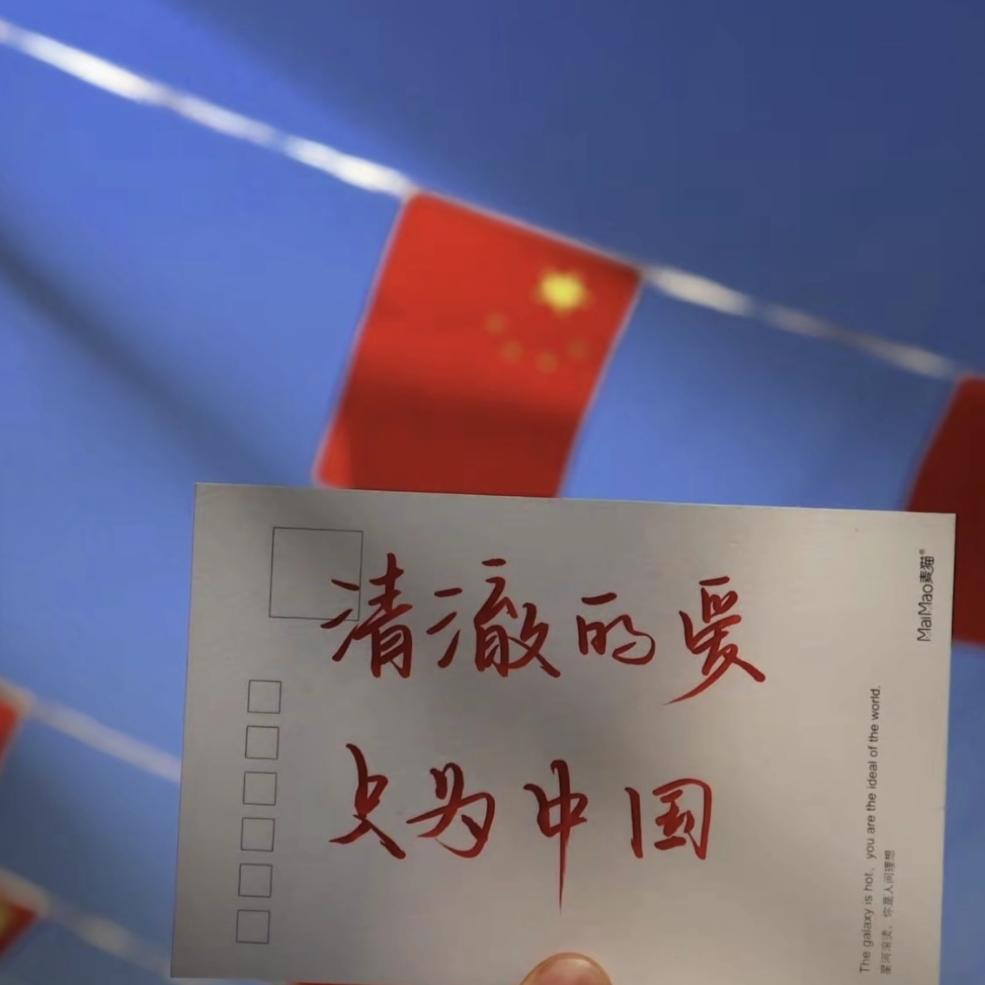 清澈的爱
只为中国
MaiMao麦猫®
The galaxy is hot，you are the ideal of the world.
星河滚烫，你是人间理想